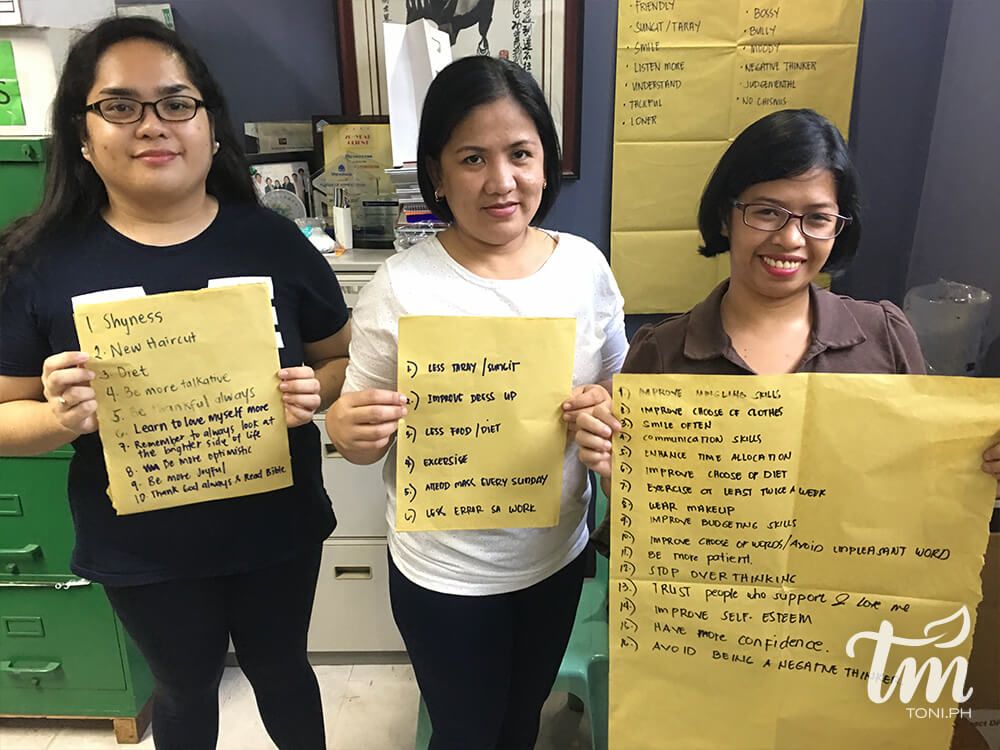 FRIENDLY
SUNGIT/TARAY
SMILE
LISTEN MORE
UNDERSTAND
TALKFUL
LONER
BOSSY
BULLY
MOODY
NEGATIVE THINKER
JUDGEMENTAL
NO CHISMIS
S
1. Shyness
2. New Haircut
3. Diet
4. Be more talkative
5. Be thankful always
6. Learn to love myself more
7. Remember to always look at
the brighter side of life
8. Be more optimistic
9. Be more Joyful
10. Thank God always & Read Bible
1.) LESS TARAY/SUNGIT
2.) IMPROVE DRESS UP
3.) LESS FOOD/DIET
4.) EXCERSISE
5.) ATTEND MASS EVERY SUNDAY
6.) LESS ERROR SA WORK
1) IMPROVE MINGLING SKILLS
2) IMPROVE CHOOSE OF CLOTHES
3) SMILE OFTEN
4) COMMUNICATION SKILLS
5) ENHANCE TIME ALLOCATION
6) IMPROVE CHOOSE OF DIET
7) EXERCISE at LEAST TWICE A WEEK
8) WEAR MAKEUP
9) IMPROVE BUDGETING SKILLS
10) IMPROVE CHOOSE OF WORDS/AVOID UNPLEASANT WORD
11) BE more patient.
12) STOP OVER THINKING
13.) TRUST people who support & love me
14) IMPROVE SELF-ESTEEM
15.) HAVE more confidence.
16.) AVOID BEING A NEGATIVE THINKER
tm
TONI.PH